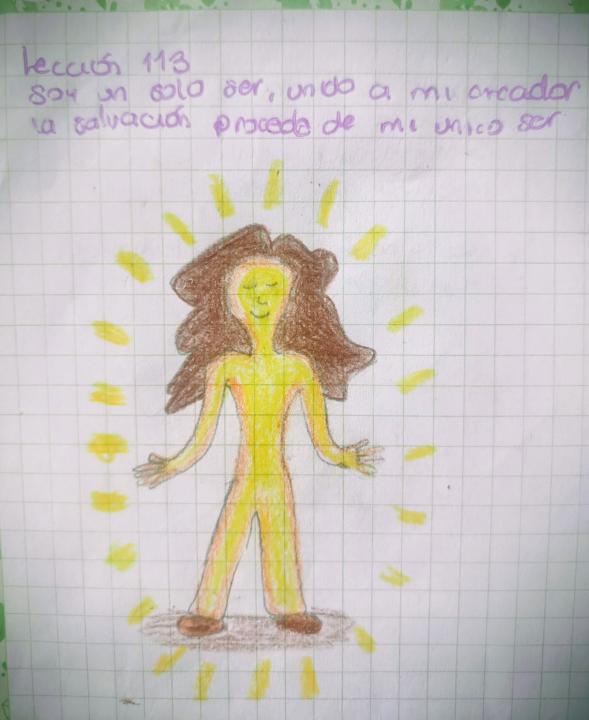 Lección 113
soy un solo ser, unido a mi creador
la salvación procede de mi unico ser